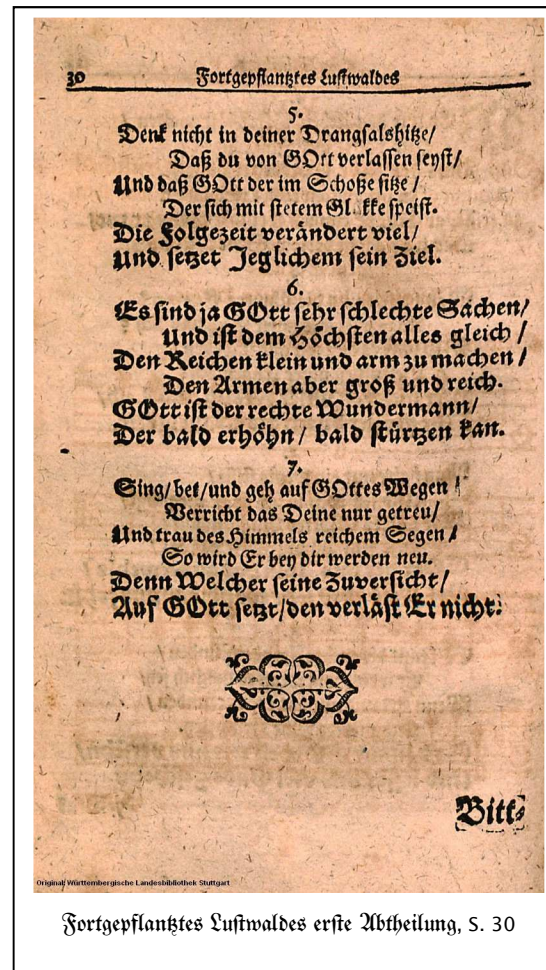 30 Fortgepflantztes Lustwaldes
5.
Denk nicht in deiner Drangsalshitze/
Daß du von GOtt verlassen seyst/
Und daß GOtt der im Schoße sitze/
Der sich mit stetem speist.
Die Folgezeit verändert viel/
Und setzet Jeglichem sein Ziel.
6.
Es sind ja GOtt sehr schlechte Sachen/
Und ist dem Höchsten alles gleich/
Den Reichen klein und arm zu machen/
Den Armen aber groß und reich.
GOtt ist der rechte Wundermann/
Der bald erhöhn/ bald stürtzen kan.
7.
Sing/bet/und geh auf GOttes Wegen/
Verricht das Deine nur getreu/
Und trau des Himmels reichem Segen/
So wird Er bey dir werden neu.
Denn Welcher seine Zuversicht/
Auf GOtt setzt/den verläst Er nicht.
Bitt-
Original: Württembergische Landesbibliothek Stuttgart
Fortgepflantztes Lustwaldes erste Abtheilung, S. 30